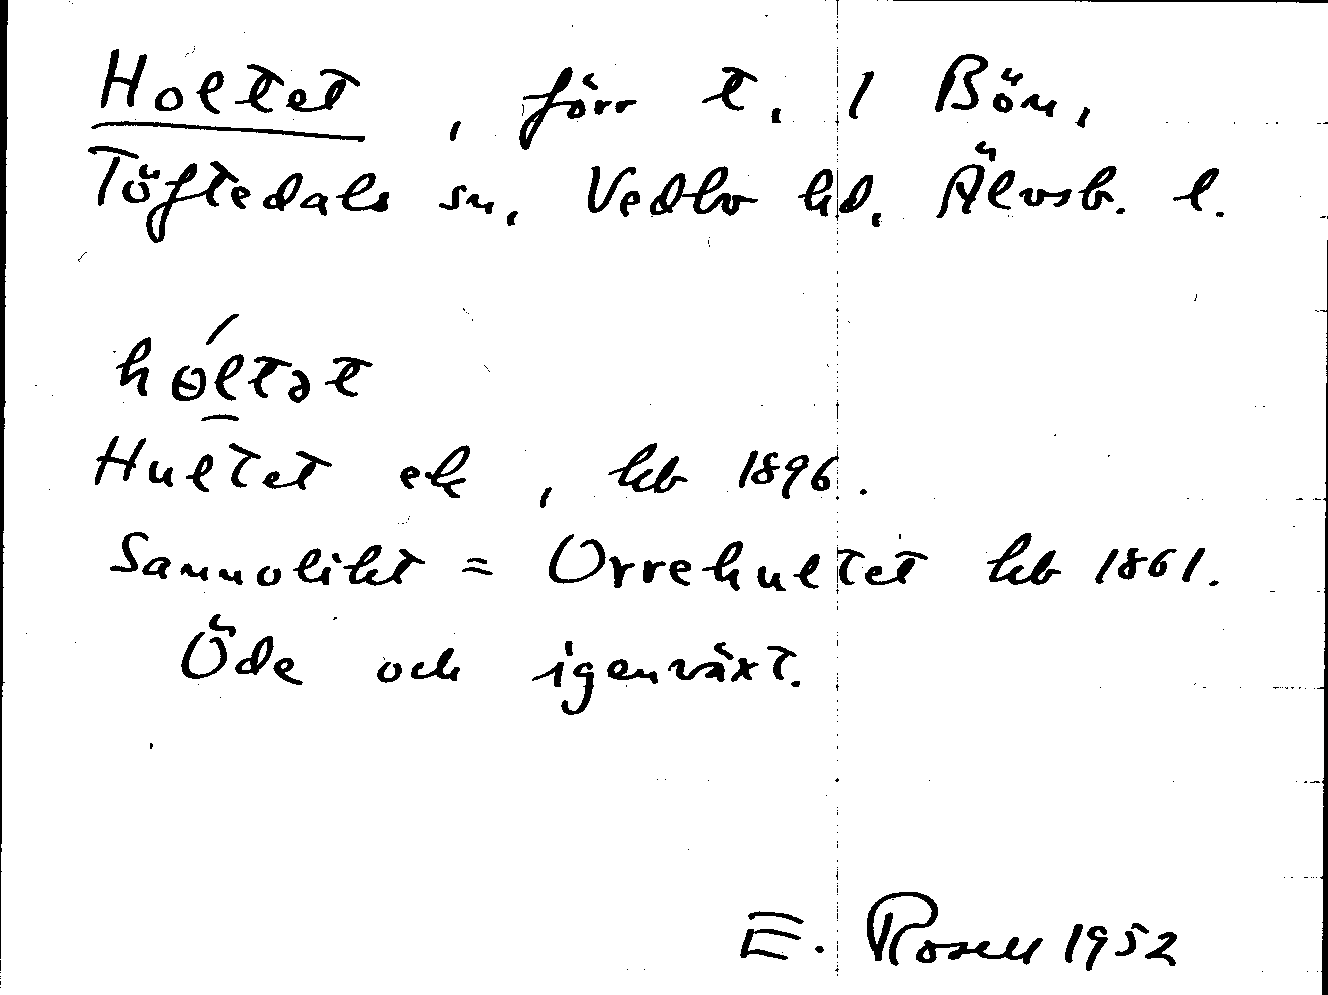 Holtet, förr t. / Bön,
Töftedals sn, Vedbo hd, Älvsb. l.
hɵ́ltət
Hultet ek, kb 1896.
Sannolikt = Orrehultet kb 1861.
Öde och igenväxt.
E. Rosell 1952